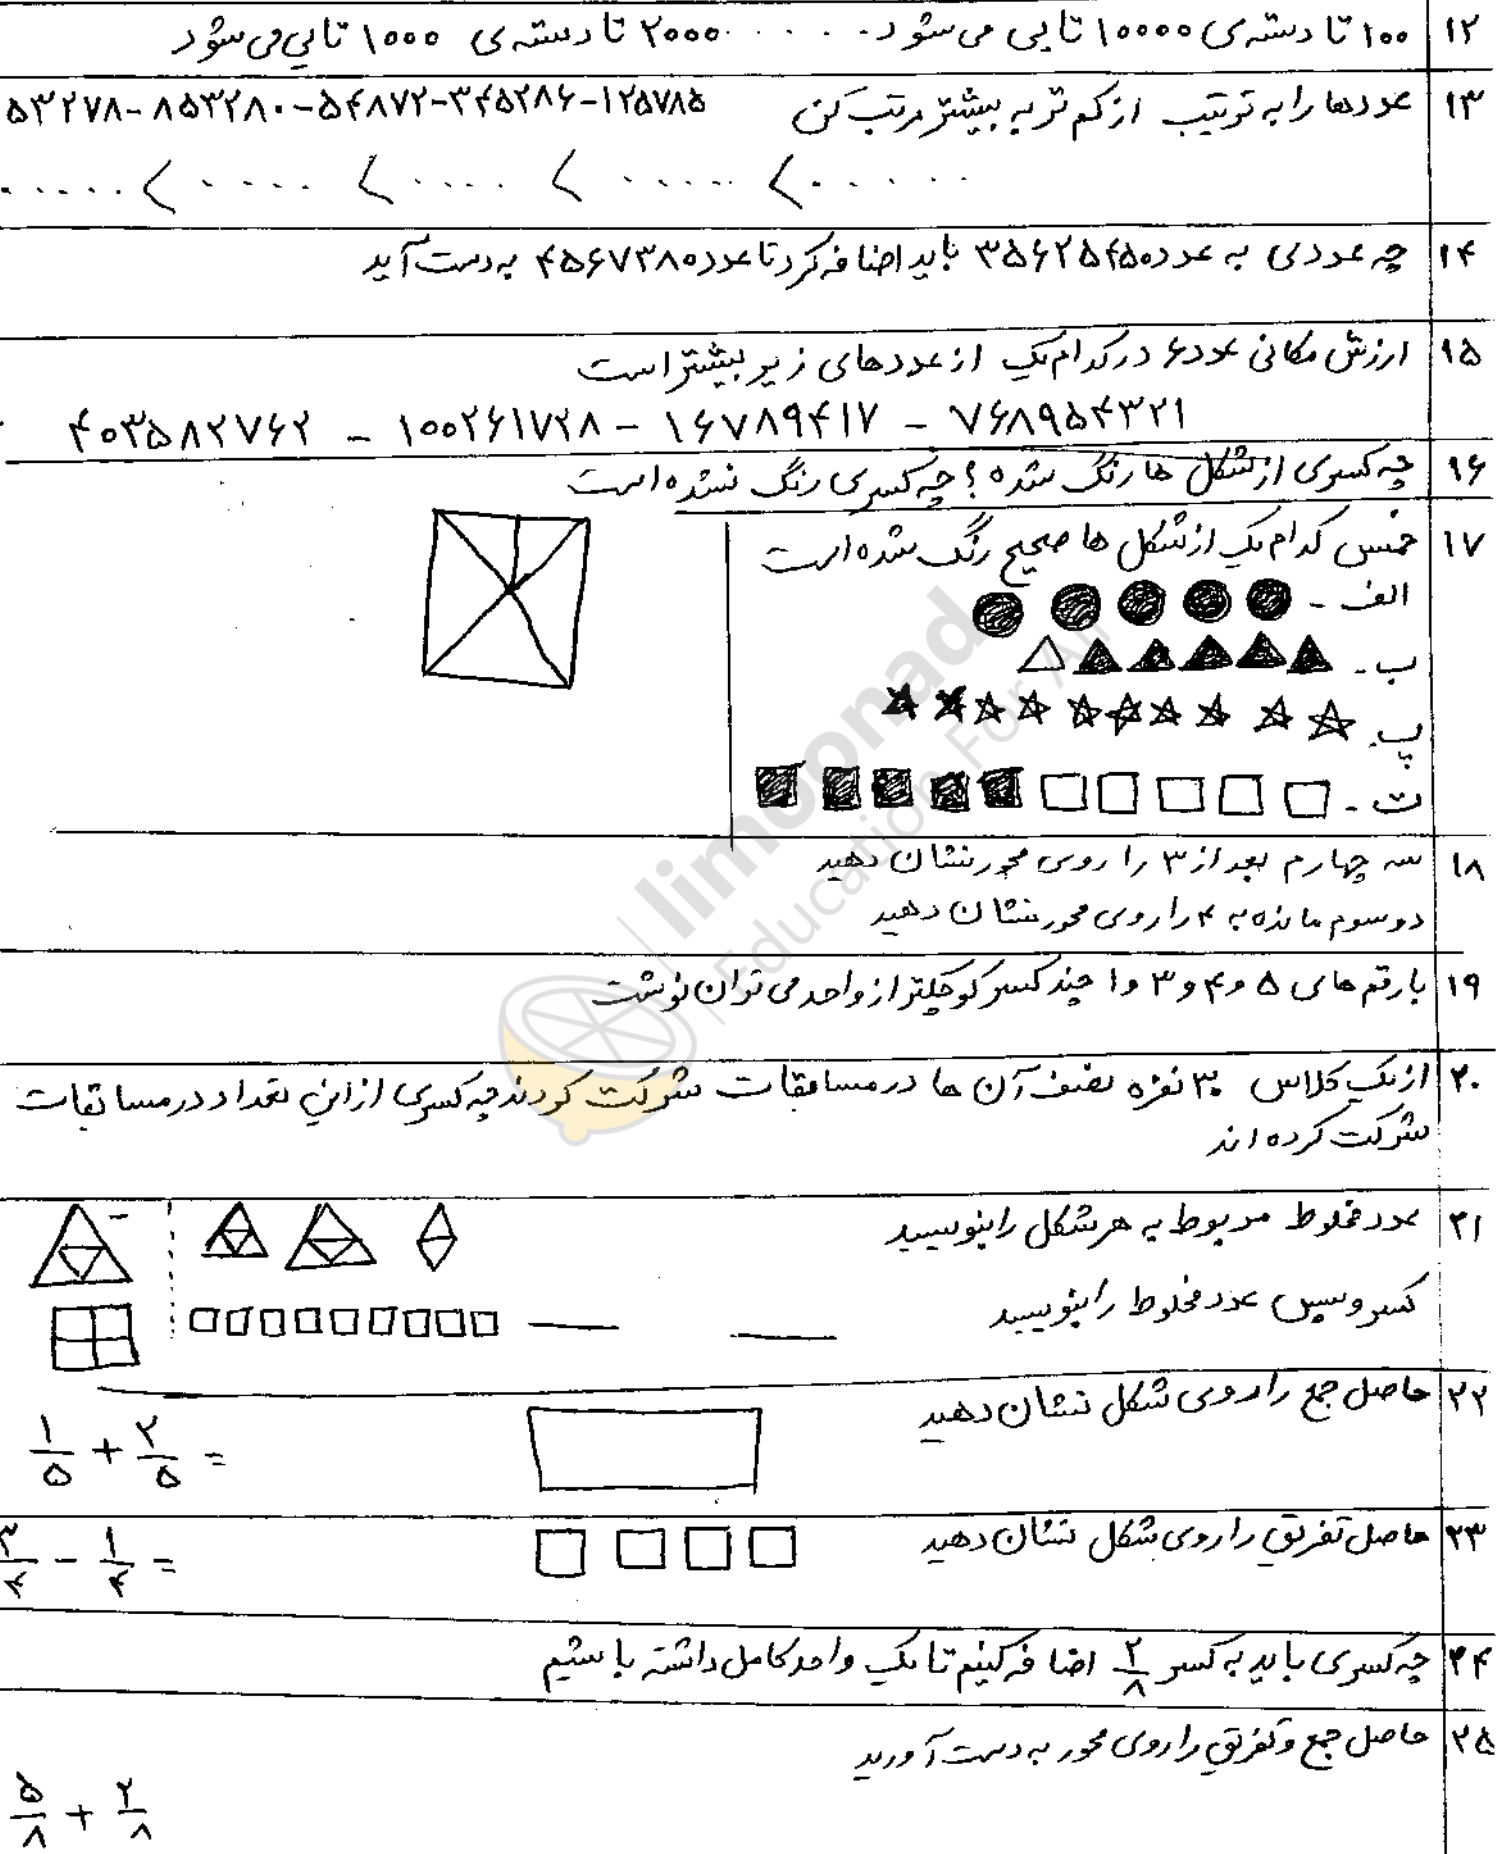 ۱۲ ۱۰۰ تا دسته ی ۱۰۰۰۰ تایی می شود ..... ۲۰۰۰ تا دسته ی ۱۰۰۰ تایی می شود
۱۳ عددها را به ترتیب از کم تر به بیشتر مرتب کن ۵۳۲۷۸-۸۵۳۲۸۰-۵۴۸۷۲-۳۴۵۲۸۶-۱۲۵۷۸۵
..... < ..... < .... < ..... < ......
۱۴ چه عددی به عدد ۳۵۶۲۵۴۵۰ باید اضافه کرد تا عدد ۴۵۶۷۳۸۰ به دست آید
۱۵ ارزش مکانی عدد ۶ در کدام یک از عددهای زیر بیشتر است
۴۰۳۵۸۲۷۶۲ - ۱۰۰۲۶۱۷۲۸ - ۱۶۷۸۹۴۱۷ - ۷۶۸۹۵۴۳۲۱
۱۶ چه کسری از شکل ها رنگ شده ؟ چه کسری رنگ نشده است
۱۷ خمس کدام یک از شکل ها صحیح رنگ شده است
الف -
ب -
پ -
ت -
۱۸ سه چهارم بعد از ۳ را روی محور نشان دهید
دو سوم مانده به ۴ را روی محور نشان دهید
۱۹ با رقم های ۵ و ۴ و ۳ و ۱ چند کسر کوچکتر از واحد می توان نوشت
۲۰ از یک کلاس ۳۰ نفره نصف آن ها در مسابقات شرکت کردند چه کسری از این تعداد در مسابقات
شرکت کرده اند
۲۱ عدد مخلوط مربوط به هر شکل را بنویسید
کسر و سپس عدد مخلوط را بنویسید
۲۲ حاصل جمع را روی شکل نشان دهید
۱/۵ + ۲/۵ =
۲۳ حاصل تفریق را روی شکل نشان دهید
۳/۴ - ۱/۴ =
۲۴ چه کسری باید به کسر ۲/۸ اضافه کنیم تا یک واحد کامل داشته باشیم
۲۵ حاصل جمع و تفریق را روی محور به دست آورید
۵/۸ + ۲/۸
limoonad
Education For All